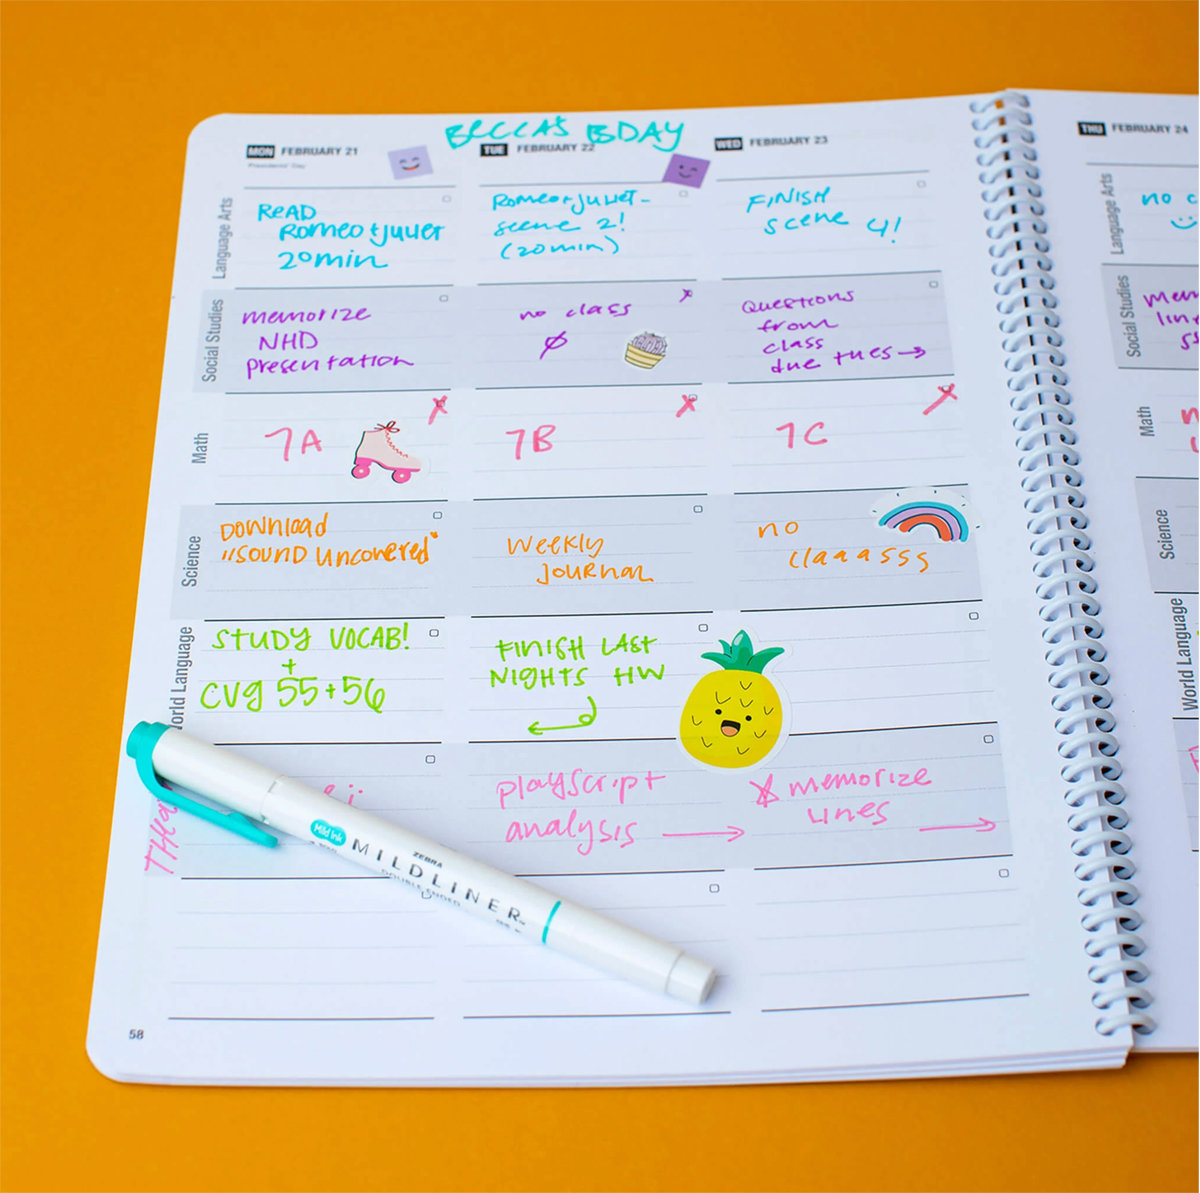 BECCA'S BDAY
MON FEBRUARY 21
Presidents' Day
TUE FEBRUARY 22
WED FEBRUARY 23
THU FEBRUARY 24
Language Arts
READ
Romeo + Juliet
20min
Romeo + Juliet-
scene 2!
(20min)
FINISH
scene 4!
Language Arts
no
Social Studies
memorize
NHD
presentation
no class
Questions
from
class
due tues →
Social Studies
Math
7A
7B
7C
Math
Science
DOWNLOAD
"SOUND uncovered"
Weekly
JOURNAL
no
claaasss
Science
World Language
STUDY VOCAB!
+
CVg 55+56
FINISH LAST
NIGHTS HW
World Language
playscript
analysis →
memorize
lines →
Mild Ink
ZEBRA
MILDLINER
DOUBLE ENDED
58